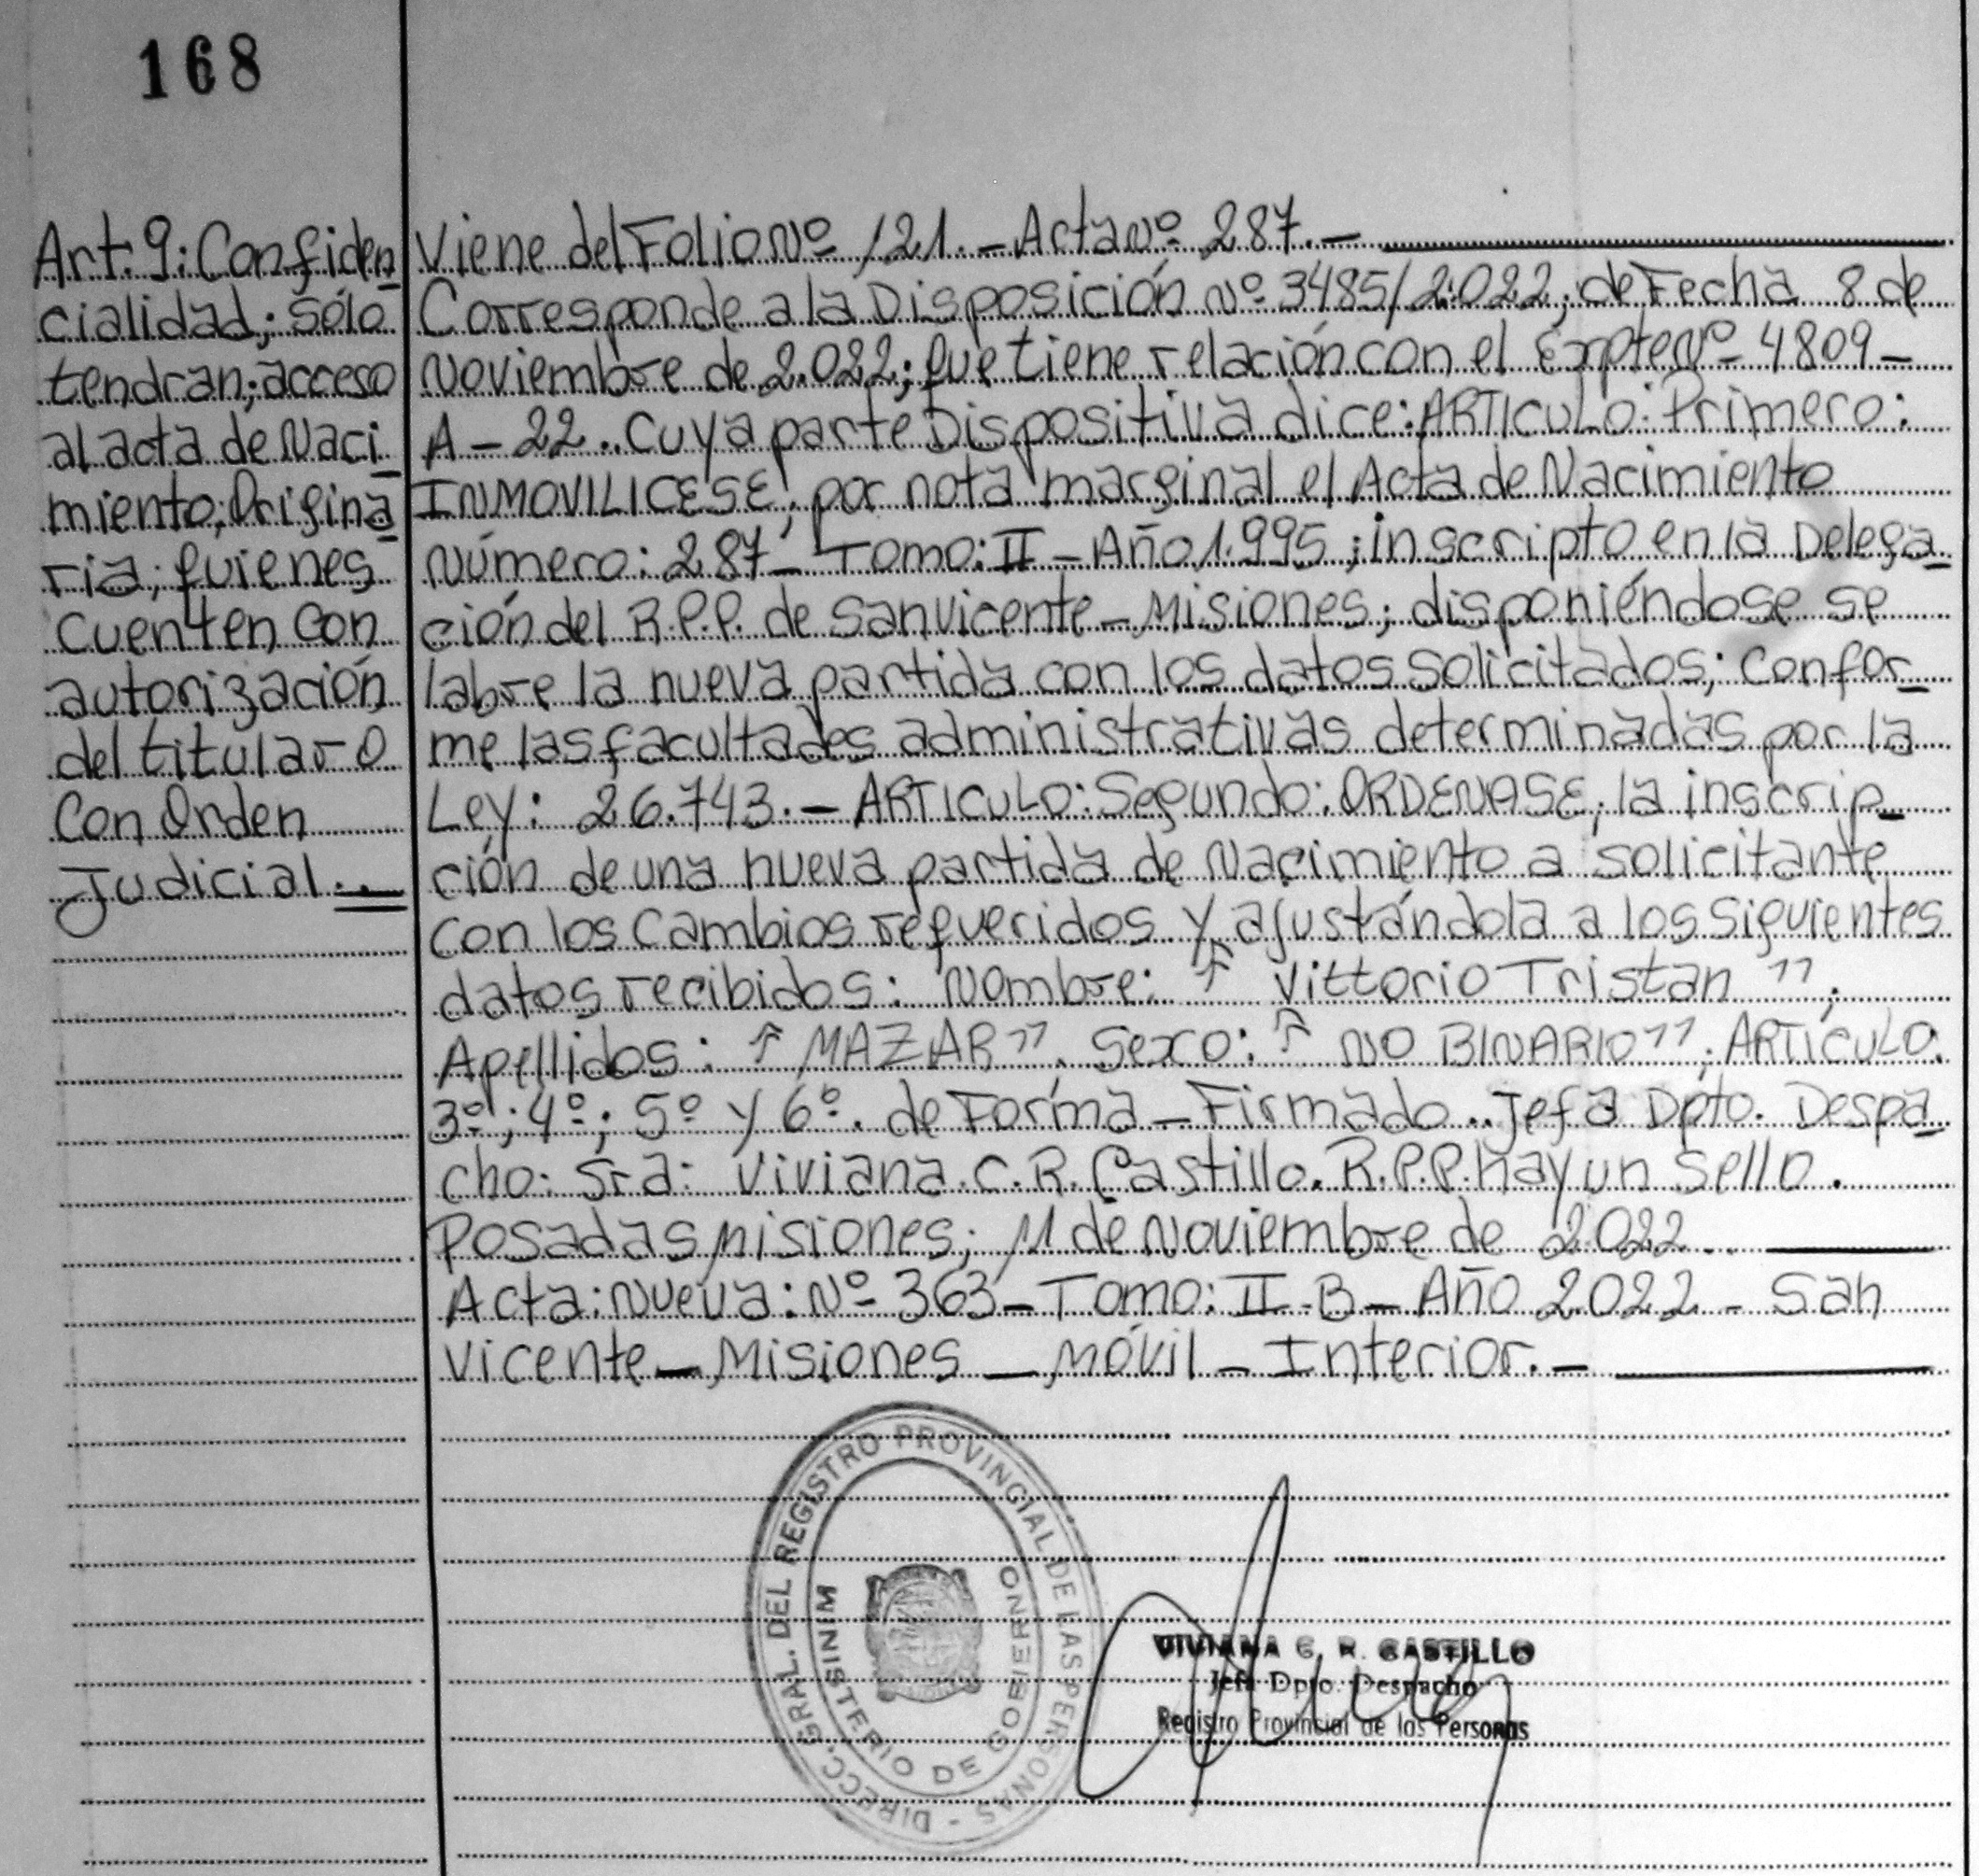 168
Art. 9: Confiden
cialidad; sólo
tendran; acceso
al acta de Naci
miento; Origina
ria; quienes
cuenten con
autorización
del titular o
con Orden
Judicial.=
Viene del Folio Nº 121.- Acta Nº 287.-
Corresponde a la Disposición Nº 3485/2.022; de Fecha 8 de
Noviembre de 2.022; que tiene relación con el Expte Nº 4809-
A-22.. Cuya parte Dispositiva dice: ARTICULO: Primero:
INMOVILICESE; por nota marginal el Acta de Nacimiento
Número: 287- Tomo: II - Año 1.995; inscripto en la Delega
ción del R.P.P. de San Vicente - Misiones; disponiéndose se
labre la nueva partida con los datos solicitados; Confor
me las facultades administrativas determinadas por la
Ley: 26.743.- ARTICULO: Segundo: ORDENASE; la inscrip
ción de una nueva partida de Nacimiento a solicitante
con los Cambios requeridos y ajustándola a los siguientes
datos recibidos: Nombre: " Vittorio Tristan ";
Apellidos: " MAZAR ". Sexo: " NO BINARIO "; ARTÍCULO.
3º; 4º; 5º y 6º. de Forma - Firmado.. Jefa Dpto. Despa
cho: Sra: Viviana. C. R. Castillo. R.P.P. hay un sello.
Posadas Misiones; 11 de Noviembre de 2.022..
Acta: Nueva: Nº 363 - Tomo: II - B - Año 2.022 - San
Vicente - Misiones - Móvil - Interior.-
DIRECC. GRAL. DEL REGISTRO PROVINCIAL DE LAS PERSONAS -
MINISTERIO DE GOBIERNO
VIVIANA C. R. CASTILLO
Jefa Dpto. Despacho
Registro Provincial de las Personas